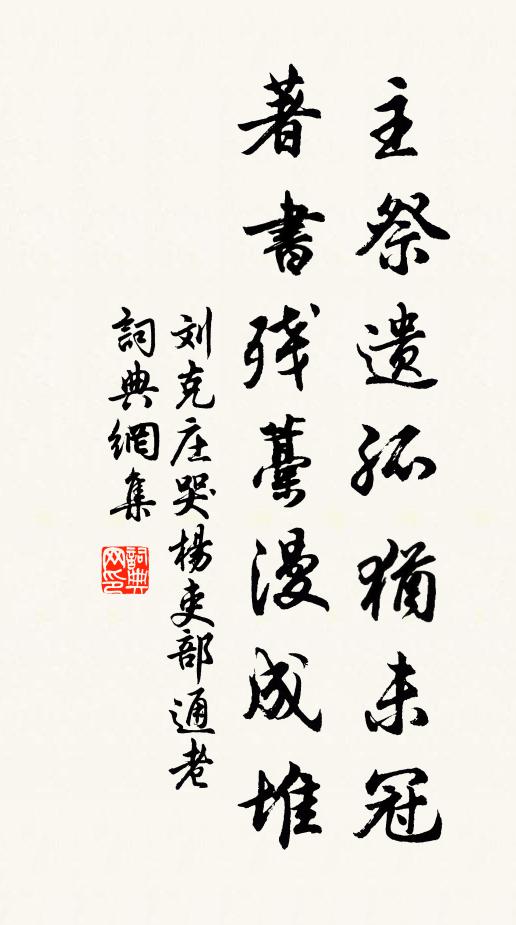 主祭遗孤犹未冠
著书残藁漫成堆
刘克庄哭杨吏部通老
詞典網集
詞典网印